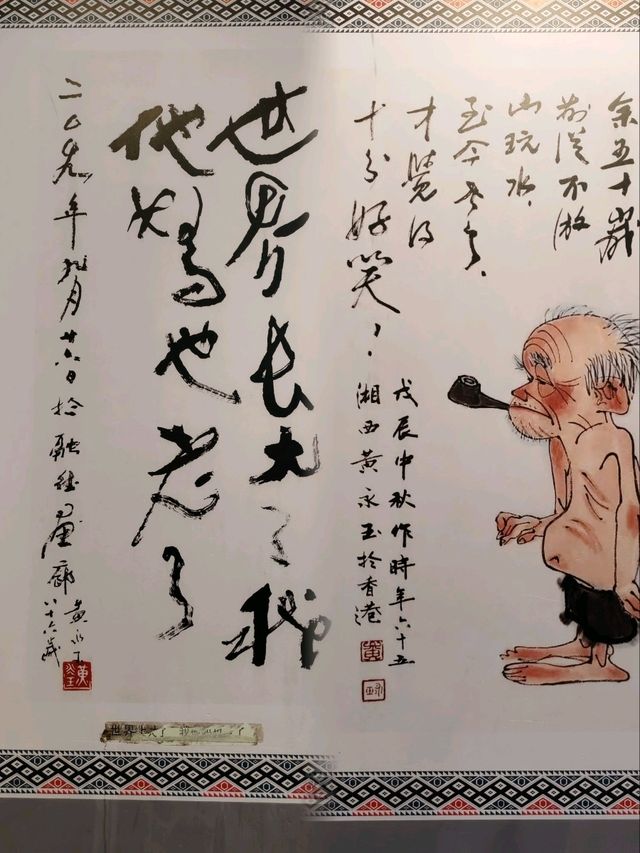 余五十歲
前從不游
山玩水，
至今老了，
才覺得
十分好笑，
戊辰中秋作時年六十五
湘西黃永玉於香港
黃
世界长大了我
他媽也老了
二〇〇九年九月廿六日於融程畫廊
黃永玉
八十六歲
世界长大了